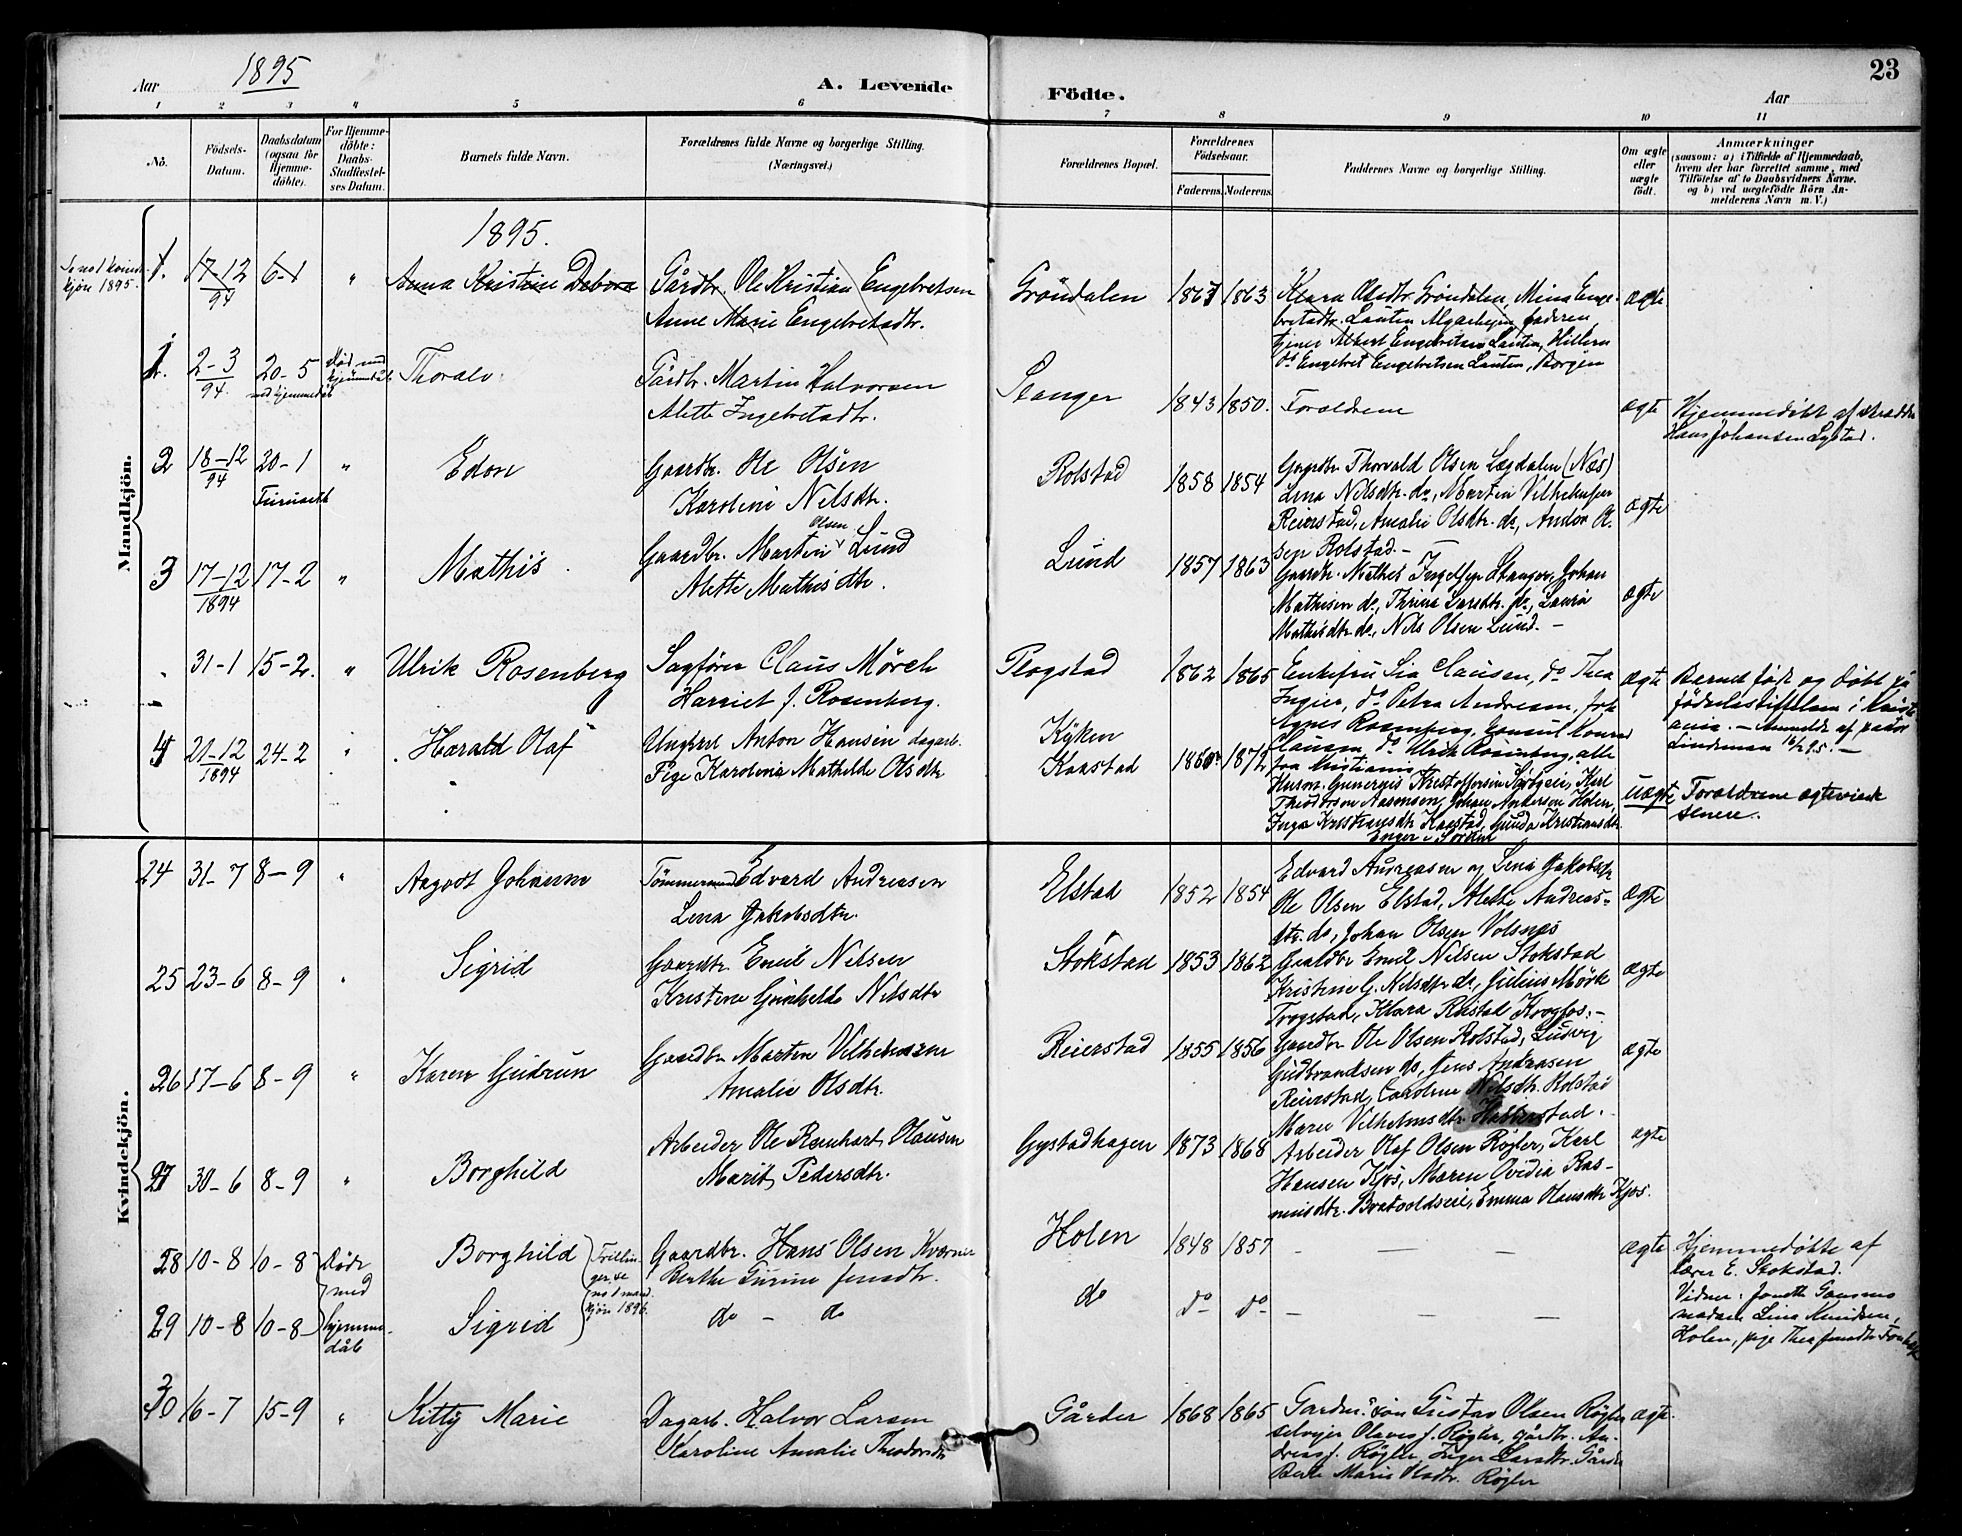 Aar 1895 A. Levende Födte. Aar 23
1 2 3 4 5 6 7 8 9 10 11
No.
Födsels-
Datum.
Daabsdatum
(ogsaa for
Hjemme-
döbte).
For Hjemme-
döbte:
Daabs-
Stadfæstel-
ses Datum.
Barnets fulde Navn.
Forældrenes fulde Navne og borgerlige Stilling.
(Næringsvei.)
Forældrenes Bopæl.
Forældrenes
Födselsaar.
Faderens. Moderens.
Faddernes Navne og borgerlige Stilling.
Om ægte
eller
uægte
födt.
Anmærkninger
(saasom: a) i Tilfælde af Hjemmedaab,
hvem der har forrettet samme, med
Tilföielse af to Daabsvidners Navne.
og b) ved uægtefödte Börn An-
melderens Navn m. V.)
Mandkjön.
1895.
Se no 1 kvinde-
kjön 1895.
1. 17-12 94 6-1 " Anna Kristine Debora
Gårdbr. Ole Kristian Engebretsen
Anne Marie Engebretsdtr.
Gröndalen 1867 1863
Klara Olsdtr. Gröndalen, Mina Enge-
bretsdtr. Lauten, faderen,
tjener Albert Engebretsen Lauten, Hillern
do Engebret Engebretsen Lauten, Borgen
ægte
1. 2-3 94. 20-5 Thoralv.
Gårdbr. Martin Halvorsen
Alette Ingebretsdtr.
Stanger 1843 1850. Forældrene ægte
Hjemmedöbt af skrædder
Hans Johansen Lystad.
2 18-12 94 20-1 " Edon
Furuseth
Gaardbr. Ole Olsen
Karoline Nilsdtr.
Rolstad 1858 1854
Gaardbr Thorvald Olsen Lægdalen (Næs)
Lena Nilsdtr. do, Martin Vilhelmsen
Reierstad, Amalie Olsdtr. do, Andor O.
sen Rolstad. -
ægte
3 17-12 1894 17-2 " Mathis.
Gaardbr. Martin Olsen Lund
Alette Mathisdtr.
Lund 1857 1863
Gaardbr. Mathis Stanger, Johan
Mathisen do, Thrine Larsdtr. do, Laura
Mathisdtr. do, Nils Olsen Lund. -
ægte
31-1 15-2. " Ulrik Rosenberg
Sagförer Claus Mörch
Harriet f. Rosenberg.
Trogstad 1862 1865
Enkefru Sia Clausen, do Thea
Ingier, do Petra Andresen, frk
Agnes Rosenberg, Consul Konrad
Clausen, do Ulrik Rosenberg, alle
fra Kristiania
ægte
Barnet födt og döbt på
födselsstiftelsen i Kristi-
ania. - Anmeldt af pastor
Lindeman 16/2 95. -
4 21-12 1894 24-2 " Harald Olaf
Ungkarl Anton Hansen dagarb.
Pige Karoline Mathilde Olsdtr
Kyken
Kaastad 1872
Husm. Gunerius Kristoffersen, Karl
Theodorsen Aasensen, Johan Andersen Holen,
Inga Kristiansdtr Kaastad, Gunda Kristiansdtr.
Enger i Sörum
uægte
Forældrene ægteviede
senere.
Kvindekjön.
24 31-7 8-9 " Aagodt Johanne
Tömmermand Edvard Andreasen
Lena Jakobsdtr.
Elstad 1852 1854
Edvard Andreasen og Lena Jakobsdtr
Ole Olsen Elstad, Alette Andreas-
dtr. do, Johan Olsen Volsnes
ægte
25 23-6 8-9 " Sigrid
Gaardbr. Emil Nilsen
Kristine Gunhilde Nilsdtr
Stokstad 1853 1862
Gaardbr Emil Nilsen Stokstad
Kristine G. Nilsdtr. do, Julius Mörk
Trogstad, Klara Rustad Krogfos. -
ægte
26 17-6 8-9 " Karen Gudrun
Gaardbr Martin Vilhelmsen
Amalie Olsdtr.
Reierstad 1855 1856
Gaardbr Ole Olsen Rolstad, Ludvig
Gudbrandsen do, Jens Andreasen
Reierstad, Caroline Nilsdtr. Rolstad
Maren Vilhelmsdtr. Habberstad.
ægte
27 30-6 8-9 " Borghild
Arbeider Ole Reinhart Olausen
Marit Pedersdtr.
Gystadhagen 1873 1868
Arbeider Olaf Olsen Røgler, Karl
Hansen Kjos, Maren Ovidia Ras-
musdtr. Brotvoldseie, Emma Olausdtr Kjos.
ægte
28 10-8 10-8 Döde Borghild
med
Trillin-
ger, se
no 1 mand
kjön 1896.
Gaardbr. Hans Olsen Kværner
Berthe Gurine Jensdtr.
Holen 1848 1857 - - - ægte
Hjemmedöbte af
lærer E. Stokstad.
Vidner: Jordm
madam Lina Knudsen,
Holen, pige Thea Jensdtr
29 10-8 10-8 hjemme- Sigrid
dåb
do - do
do do do - - -
30 16-7 15-9 " Kitty Marie
Dagarb. Halvor Larsen
Karoline Amalie Theodorsdtr
Gårder 1868 1865
Gardbr. sön Gustav Olsen Røgler
selveier Olaves J. Røgler, gårdbr. An-
dreas J. Røgler, Inger Larsdtr. Gårder
Berte Marie Olsdtr. Røgler
ægte.